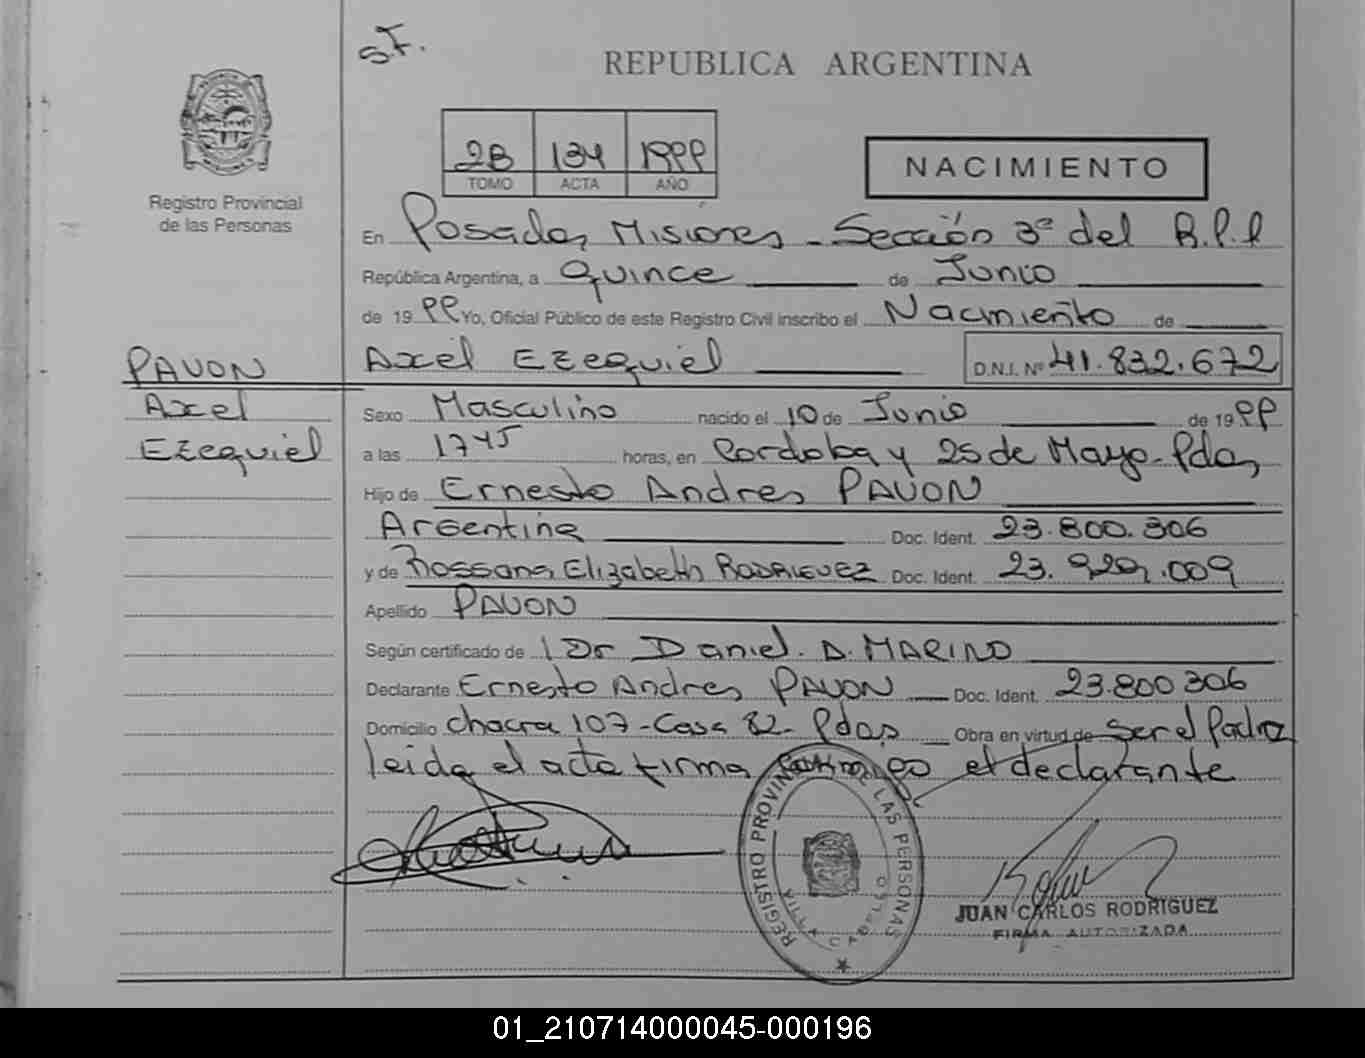 S.F.
REPUBLICA ARGENTINA
2B 134 1999
TOMO ACTA AÑO
NACIMIENTO
Registro Provincial
de las Personas
En Posadas, Misiones - Sección 3ª del R.P.P
República Argentina, a Quince de Junio
de 1999 Yo, Oficial Público de este Registro Civil inscribo el Nacimiento de
PAVON
Axel Ezequiel D.N.I. Nº 41.832.672
Axel
Sexo Masculino nacido el 10 de Junio de 1999
Ezequiel
a las 1745 horas, en Cordoba y 25 de Mayo - Pdas
Hijo de Ernesto Andres PAVON
Argentina Doc. Ident. 23.800.306
y de Rossana Elizabeth RODRIGUEZ Doc. Ident. 23.929.009
Apellido PAVON
Según certificado de Dr Daniel. A. MARINO
Declarante Ernesto Andres PAVON Doc. Ident. 23.800306
Domicilio chacra 107 - Casa 82 - Pdas Obra en virtud de Ser el Padre
leida el acta firma conmigo el declarante
REGISTRO PROVINCIAL DE LAS PERSONAS
VILLA CABELLO
JUAN CARLOS RODRIGUEZ
FIRMA AUTORIZADA
01_210714000045-000196